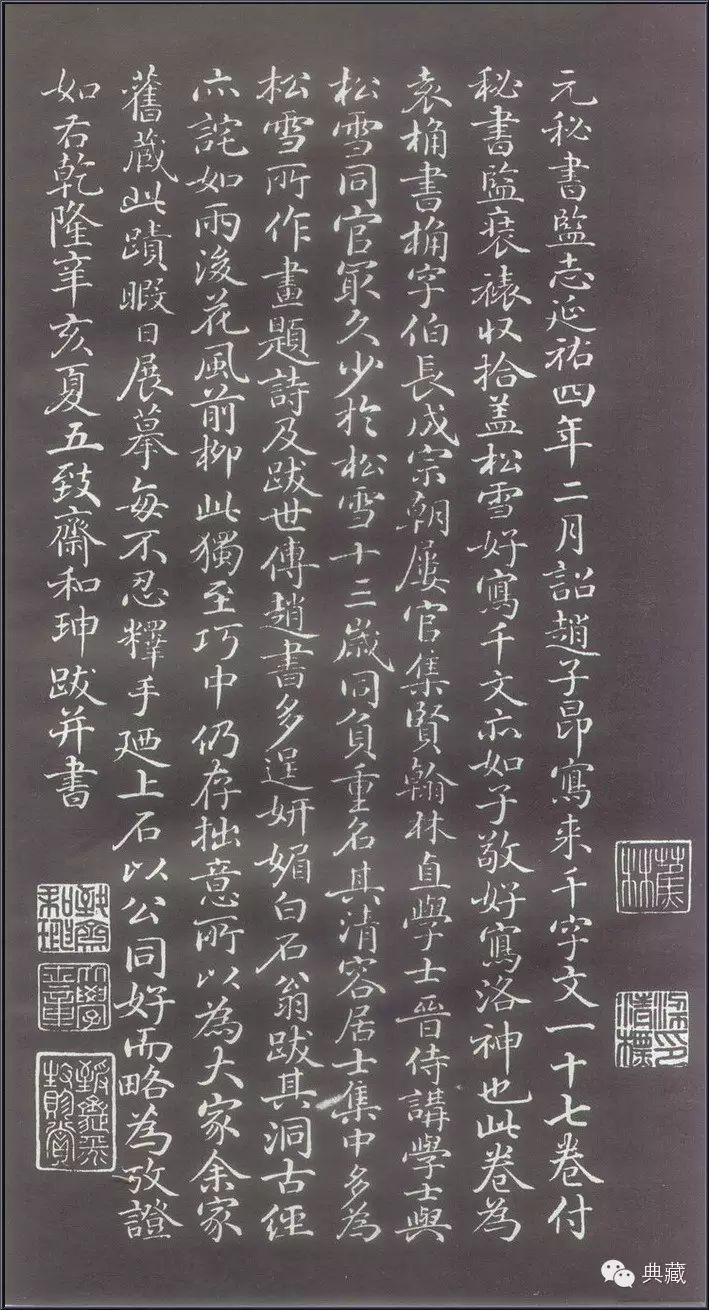 元秘書監志延祐四年二月詔趙子昂寫来千字文一十七卷付
秘書監裒裱収拾盖松雪好寫千文亦如子敬好寫洛神也此卷為
袁桷書桷字伯長成宗朝屢官集賢翰林直學士晉侍講學士與
松雪同官冣久少於松雪十三歲同負重名其清容居士集中多為
松雪所作畫題詩及跋世傳趙書多逞妍媚白石翁跋其洞古經
亦詫如雨後花風前柳此獨至巧中仍存拙意所以為大家余家
舊蔵此蹟暇日展摹每不忍釋手廼上石以公同好而略為攷證
如右乾隆辛亥夏五致齋和珅跋并書
蕉林
致齋和珅
典藏